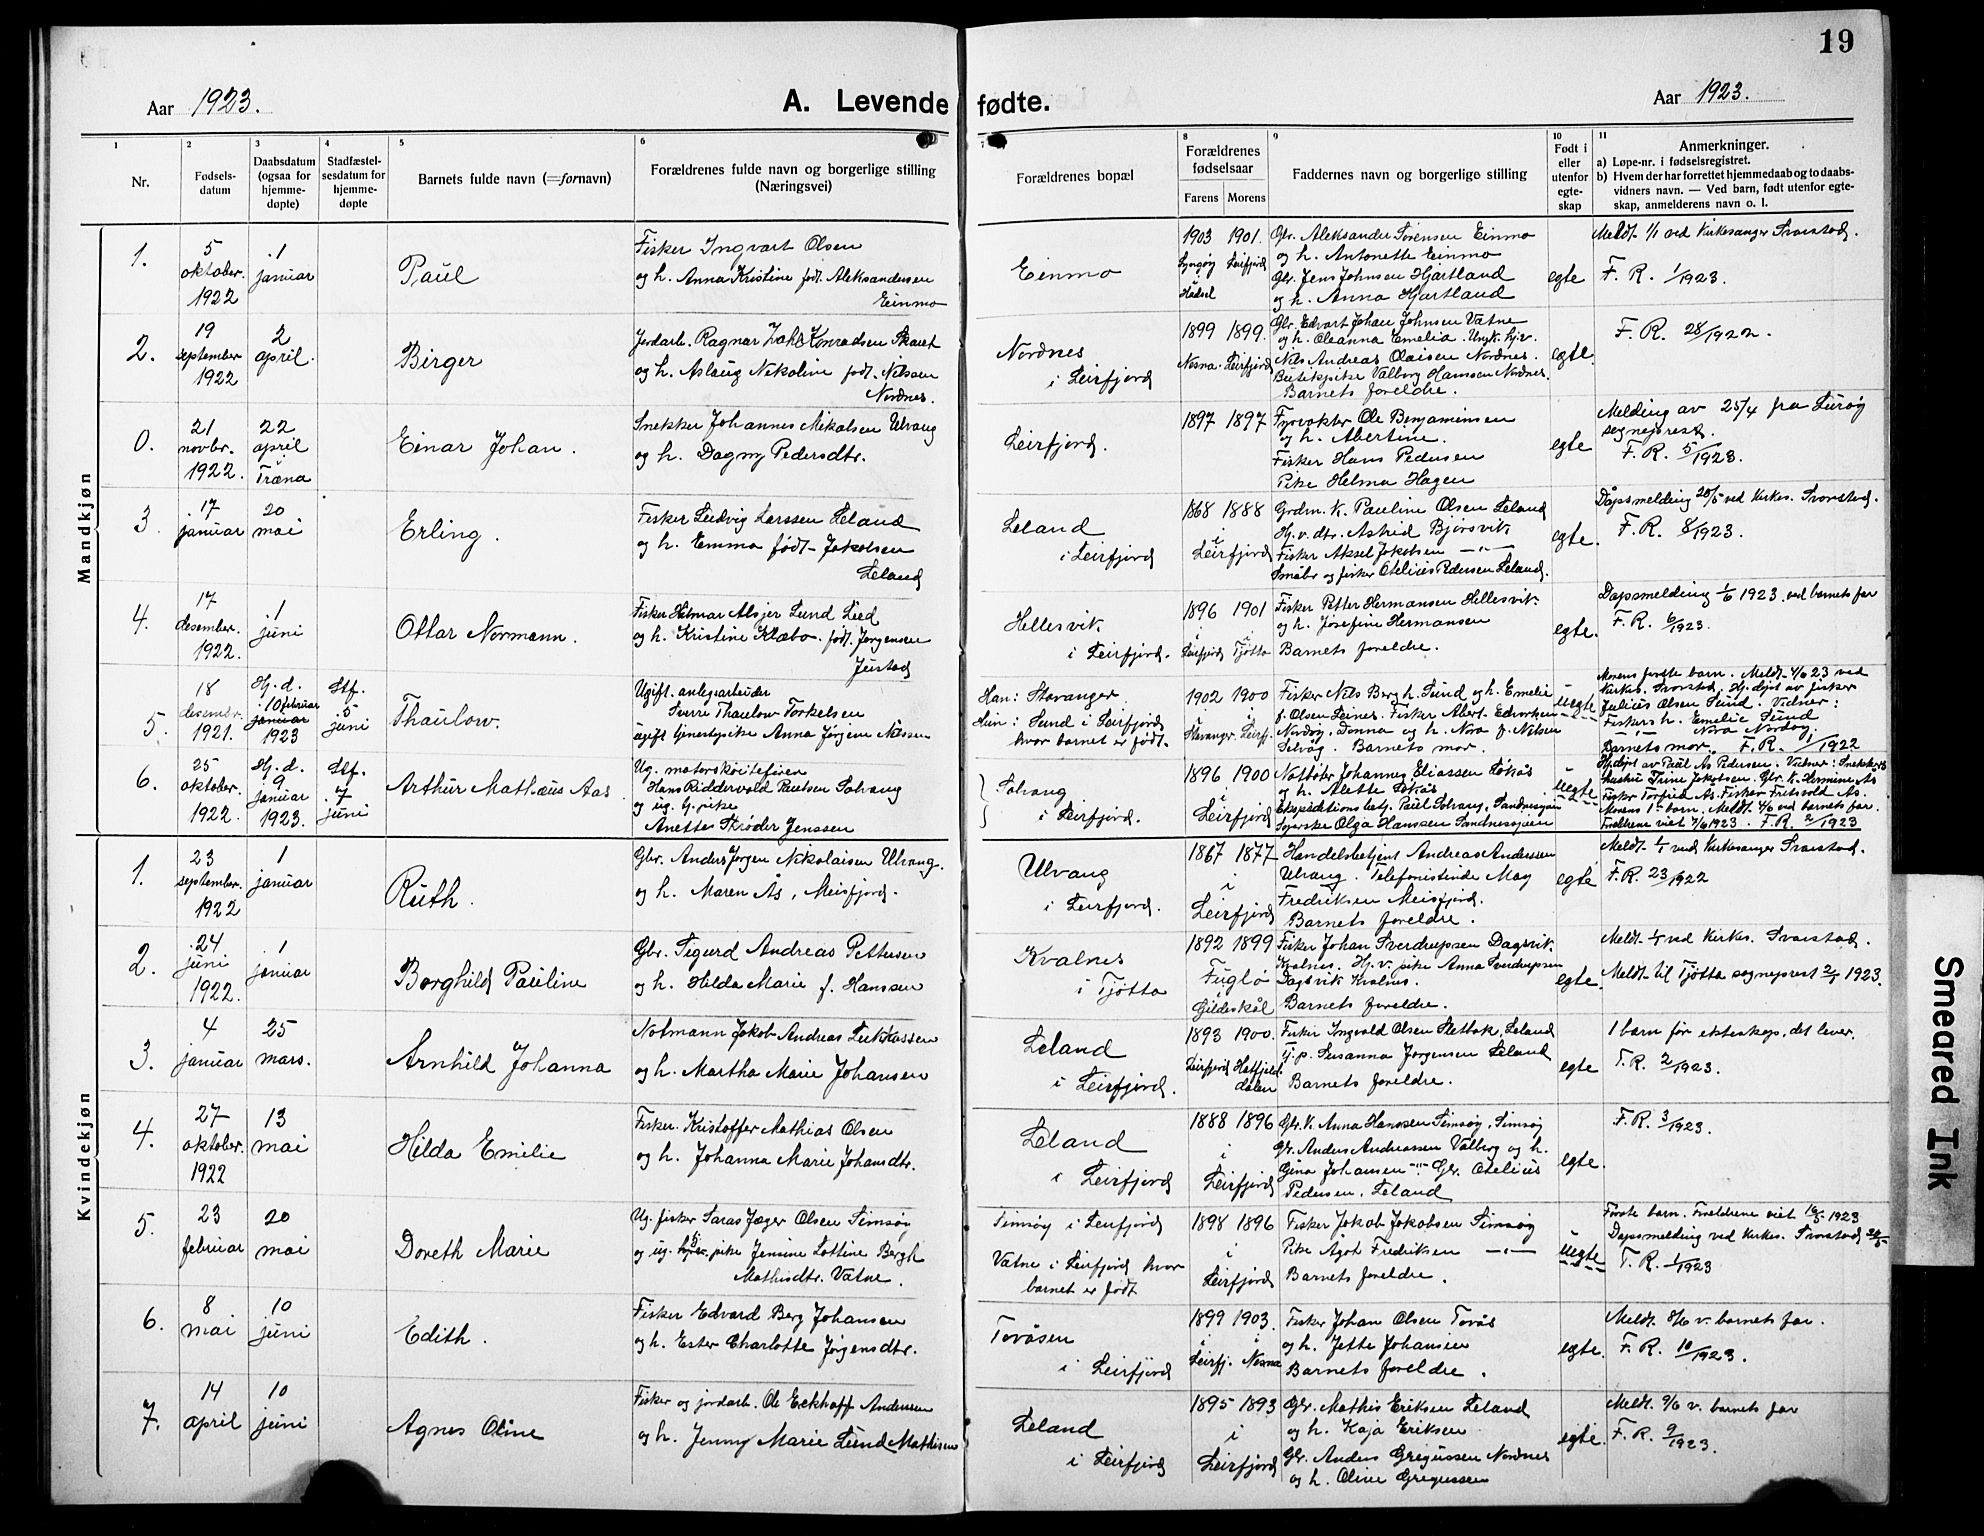 19
Aar 1923.
A. Levende fødte.
Aar 1923.
1
Nr.
2
Fødsels-
datum
3
Daabsdatum
(ogsaa for
hjemme-
døpte)
4
Stadfæstel-
sesdatum for
hjemme-
døpte
5
Barnets fulde navn (=fornavn)
6
Forældrenes fulde navn og borgerlige stilling
(Næringsvei)
7
Forældrenes bopæl
8
Forældrenes
fødselsaar
Farens Morens
9
Faddernes navn og borgerlige stilling
10
Født i
eller
utenfor
egte-
skap
11
Anmerkninger.
a) Løpe-nr. i fødselsregistret.
b) Hvem der har forrettet hjemmedaab og to daabs-
vidners navn. — Ved barn, født utenfor egte-
skap, anmelderens navn o. l.
Mandkjøn
1.
5
oktober.
1922
1
januar
Paul
Fisker Ingvart Olsen
og h. Anna Kristine født Aleksandersen
Einmo
Einmo
1903 1901.
Hadsel
Leirfjord
Gbr. Aleksander Sørensen Einmo
og h. Antonette Einmo
Gbr. Jens Johnsen Hjartland
og h. Anna Hjartland
egte
Meldt 1/1 ved Kirkesanger Svorstad.
F. R. 1/1923.
2.
19
september
1922
2
april.
Birger
Jordarb. Ragnar Konradsen Skaret
og h. Aslaug Nikoline født Nilssen
Nordnes.
Nordnes
i Leirfjord
1899 1899.
Nesna. Leirfjord
Gbr. Edvart Johan Johnsen Vatne
og h. Oleanna Emelia. Ungk. hj.v.
Nils Andreas Olaisen Nordnes.
Butikpike Valborg Hansen Nordnes.
Barnets foreldre.
egte.
F. R. 28/1922.
0.
21
novbr.
1922.
22
april
i Træna
Einar Johan.
Snekker Johannes Mikalsen Ulvang
og h. Dagny Pedersdtr.
Leirfjord.
1897 1897
Fyrvokter Ole Benjaminsen
og h. Abertine.
Fisker Hans Pedersen
Pike Helma Hagen
egte
Melding av 25/4 fra Lurøy
sogneprest.
F. R. 5/1923.
3.
17
januar
20
mai
Erling.
Fisker Ludvig Larssen Leland
og h. Emma født Jakobsen
Leland
Leland
i Leirfjord
1868 1888
i
Leirfjord
Grdm. k. Pauline Olsen Leland
Hj. v. dtr. Astrid Bjørsvik
Fisker Aksel Jakobsen —"—
Småbr og fisker Otelius Pedersen Leland.
egte.
Dåpsmelding 20/5 ved Kirkes. Svorstad.
F. R. 8/1923.
4.
17
desember.
1922.
1
juni
Ottar Normann.
Fisker Helmar Alsjer Lund Leed
og h. Kristine Klæbo født Jørgensen
Justad
Hellesvik
i Leirfjord.
1896 1901
i i
Leirfjord Tjøtta
Fisker Petter Hermansen Hellesvik
og h. Josefine Hermansen
Barnets foreldre.
egte.
Dåpsmelding 1/6 1923. ved barnets far
F. R. 6/1923.
5.
18
desember.
1921.
Hj. d.
10 februar
januar
1923
Stf.
5
juni
Thaulow.
Ugift. anlegsarbeider
Sverre Thaulow Torkelsen
ugift tjenestpike Anna Jørgine Nilssen
Han: Stavanger
Hun: Sund i Leirfjord
hvor barnet er født.
1902 1900
i
Stavanger. Leirfj.
Fisker Nils Bergh. Sund og h. Emelie
f. Olsen Leines. Fisker Abert Edvorksen
Nordøy, Dønna og h. Nora f. Nilsen
Selvåg. Barnets mor.
uegte
Morens første barn. Meldt 4/6 23 ved
Kirkes. Svorstad. Hj. døpt av fisker
Julius Olsen Sund. Vidner:
Fiskers h. Emelie Sund
—"— Nora Nordøy.
Barnets mor. F. R. 1/1922
6.
25
oktober.
1922.
Hj. d.
9
januar
1923.
Stf.
7
juni
Arthur Mathæus Aas
Ug. motorskøitefører
Hans Riddervold Paulsen Solvang
og ug. tj. pike
Anette Strøder Jenssen
Solvang
i Leirfjord.
1896 1900
i
Leirfjord
Notbøter Johannes Eliassen Løkås
og h. Alette Løkås
Ekspeditionsbetj. Paul Solvang, Sandnessjøen
Syerske Olga Hanssen Sandnessjøen
uegte
Hj. døpt av Paul As Pedersen. Vidner: Snekkers
hustru Trine Jakobsen. Gbr. k. Hermine As
Fisker Torfred As. Fisker Fritsvold As.
Morens 1ste barn. Meldt 4/6 ved barnets far.
Foreldrene viet 7/6 1923. F. R. 2/1923
Kvindekjøn
1.
23
september.
1922
1
januar
Ruth.
Gbr. Anders Jørgen Nikolaisen Ulvang.
og h. Maren Ås, Meisfjord.
Ulvang
i Leirfjord.
1867 1877
i
Leirfjord
Handelsbetjent Andreas Anderssen
Ulvang. Telefonistinde May
Fredriksen Meisfjord.
Barnets foreldre.
egte
Meldt 1/1 ved Kirkesanger Svorstad.
F. R. 23/1922
2.
24
juni
1922.
1
januar
Borghild Pauline
Gbr. Sigurd Andreas Pettersen
og h. Hilda Marie f. Hanssen
Kvalnes
i Tjøtta
1892 1899
Fuglø
i
Gildeskål
Fisker Johan Sverdrupsen Dagsvik
Kvalnes. Hj. v. pike Anna Sverdrupsen
Dagsvik Kvalnes.
Barnets foreldre.
egte.
Meldt 1/1 ved Kirkes. Svorstad.
Meldt til Tjøtta sogneprest 2/1 1923.
3.
4
januar
25
mars.
Arnhild Johanna
Notmann Jakob Andreas Lukkassen
og h. Martha Marie Johansen
Leland
i Leirfjord.
1893 1900.
Leirfjord Hatfjeld-
dalen
Fisker Ingvald Olsen Slettbak, Leland
Tj.p. Susanna Jørgensen Leland
Barnets foreldre.
egte
1 barn før ekteskap, det lever.
F. R. 2/1923.
4.
27
oktober.
1922
13
mai
Hilda Emilie
Fisker Kristoffer Mathias Olsen
og h. Johanna Marie Johansdtr.
Leland
i Leirfjord
1888 1896
i
Leirfjord
Gbr. k. Anna Hanssen Simsøy, Simsøy
Gbr. Anders Andreassen Valberg og h.
Gina Johansen —"— Gbr. Otelius
Pedersen, Leland
egte.
F. R. 3/1923.
5.
23
februar
20
mai
Doreth Marie
Ug. fisker Saras Jæger Olsen Simsøy
og ug. pike Jensine Lottine Bergh
Mathisdtr. Vatne.
Simsøy i Leirfjord
Vatne i Leirfjord hvor
barnet er født
1898 1896
i
Leirfjord
Fisker Jakob Jakobsen Simsøy
Pike Ågot Fredriksen —"—
Barnets foreldre.
uegte
Første barn. Foreldrene viet 16/5 1923
Dåpsmelding ved Kirkes. Svorstad 20/5
F. R. 1/1923
6.
8
mai
10
juni
Edith.
Fisker Edvard Berg Johansen
og h. Ester Charlotte Jørgensdtr.
Tovåsen
i Leirfjord
1899 1903.
i i
Leirfj. Nesna
Fisker Johan Olsen Tovås
og h. Jette Johansen
Barnets foreldre.
egte.
Meldt 8/6 v. barnets far.
F. R. 10/1923.
7.
14
april
10
juni
Agnes Oline
Fisker og jordarb. Ole Eckhoff Anderssen
og h. Jenny Marie Lund Mathisen
Leland
i Leirfjord
1895 1893
i
Leirfjord
Gbr. Mathis Eriksen Leland
og h. Kaja Eriksen
Gbr. Anders Gregussen Nordnes
og h. Oline Gregussen
egte.
Meldt 9/6 v. barnets far
F. R. 9/1923.
Smeared Ink